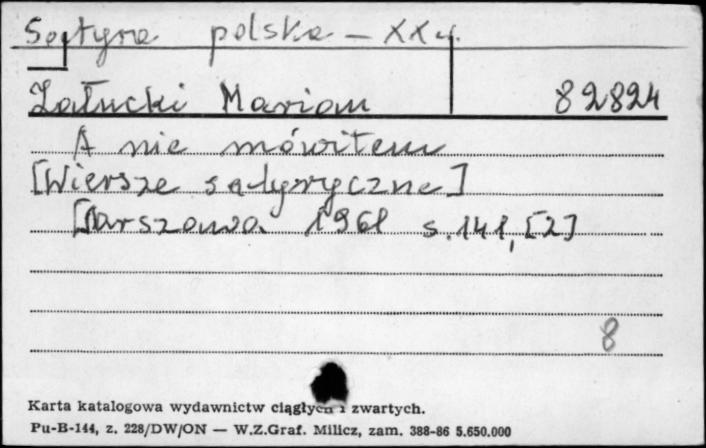 Satyra polska - XX w.
Załucki Marian 82824
A nie mówiłem
[Wiersze satyryczne]
Warszawa 1961 s. 141, [2]
8
Karta katalogowa wydawnictw ciągłych i zwartych.
Pu-B-144, z. 228/DW/ON — W.Z.Graf. Milicz, zam. 388-86 5.650.000